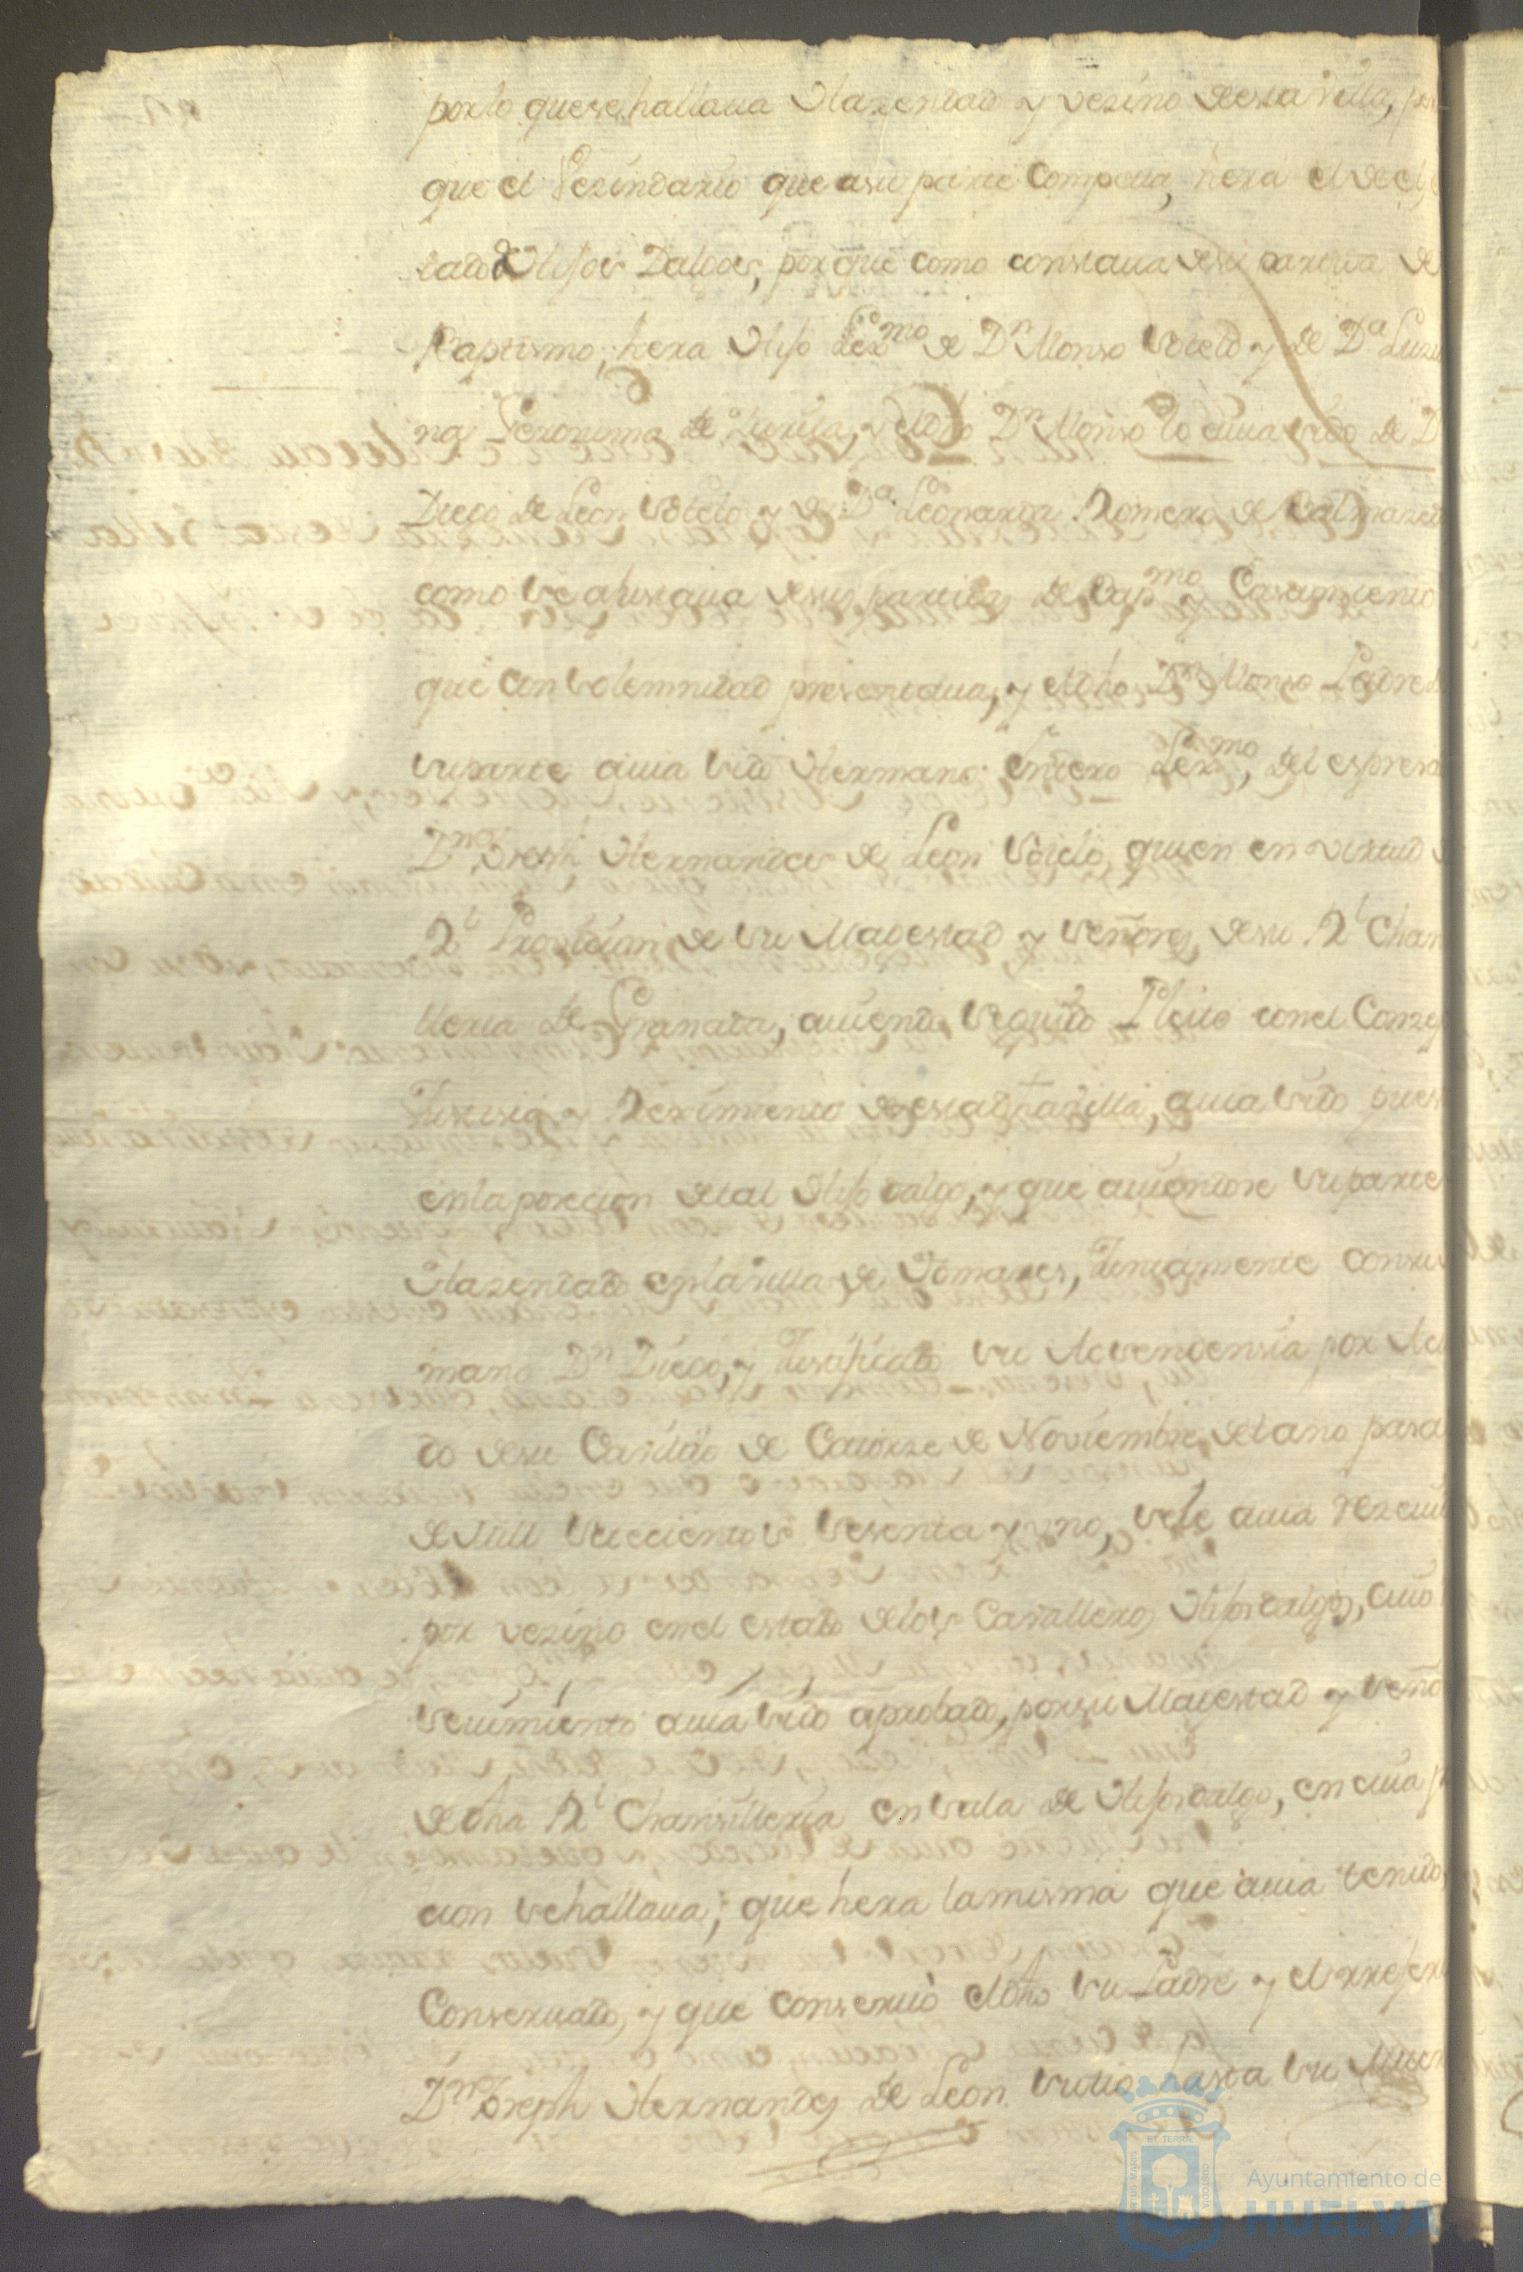 por lo que se hallaua Hazendado y vezino desta Villa, por
que el Vezindario que asu parte Competia, hera el de el
tado de Hijos Dalgos, porque como constaua desu partida de
Baptismo, hera Hijo Lexmo de Dn Alonso Sotelo y de Da Luzi
na Geronima de, y el dho Dn Alonso lo auia sido de D
Diego de Leon Sotelo y de Da Leonarda Romero de
como se ahustaua desus partidas de Bapmo y Casamiento
que con solemnidad presentaua, y el dho Dn Alonso Padre de
su parte auia sido Hermano entero Lexmo, del espresa
Dn Joseph Hernandes de Leon Sotelo, quien en virtud
Rl Prouicion de su Magestad y Señores desu Rl Chan
lleria de Granada, auiendo seguido Pleito con el Conzejo
Justisia y Reximiento de esta dha Villa, auia sido pues
en la posecion de tal Hijo dalgo, y que auiendose su parte
Hazendado en la Villa de Tomares, Juntamente consu
mano Dn Diego, y Justificado su Asendensia por Acu
do desu Cauildo de Catorze de Noviembre del año pasa
de Mill Seteciento Sesenta y uno, se le auia Rezeui
por vezino en el estado delos Cavalleros Hijosdalgo, cuio
seuimiento auia sido aprobado, porsu Magestad y Seño
de dha Rl Chansilleria en Sala de Hijosdalgo, en cuia p
cion se hallaua; que hera la misma que auia tenido
Conseruado, y que conseruò el dho su Padre y el rrefer
Dn Joseph Hernandes de Leon su tio hasta su Muer
Ayuntamiento de
HUELVA